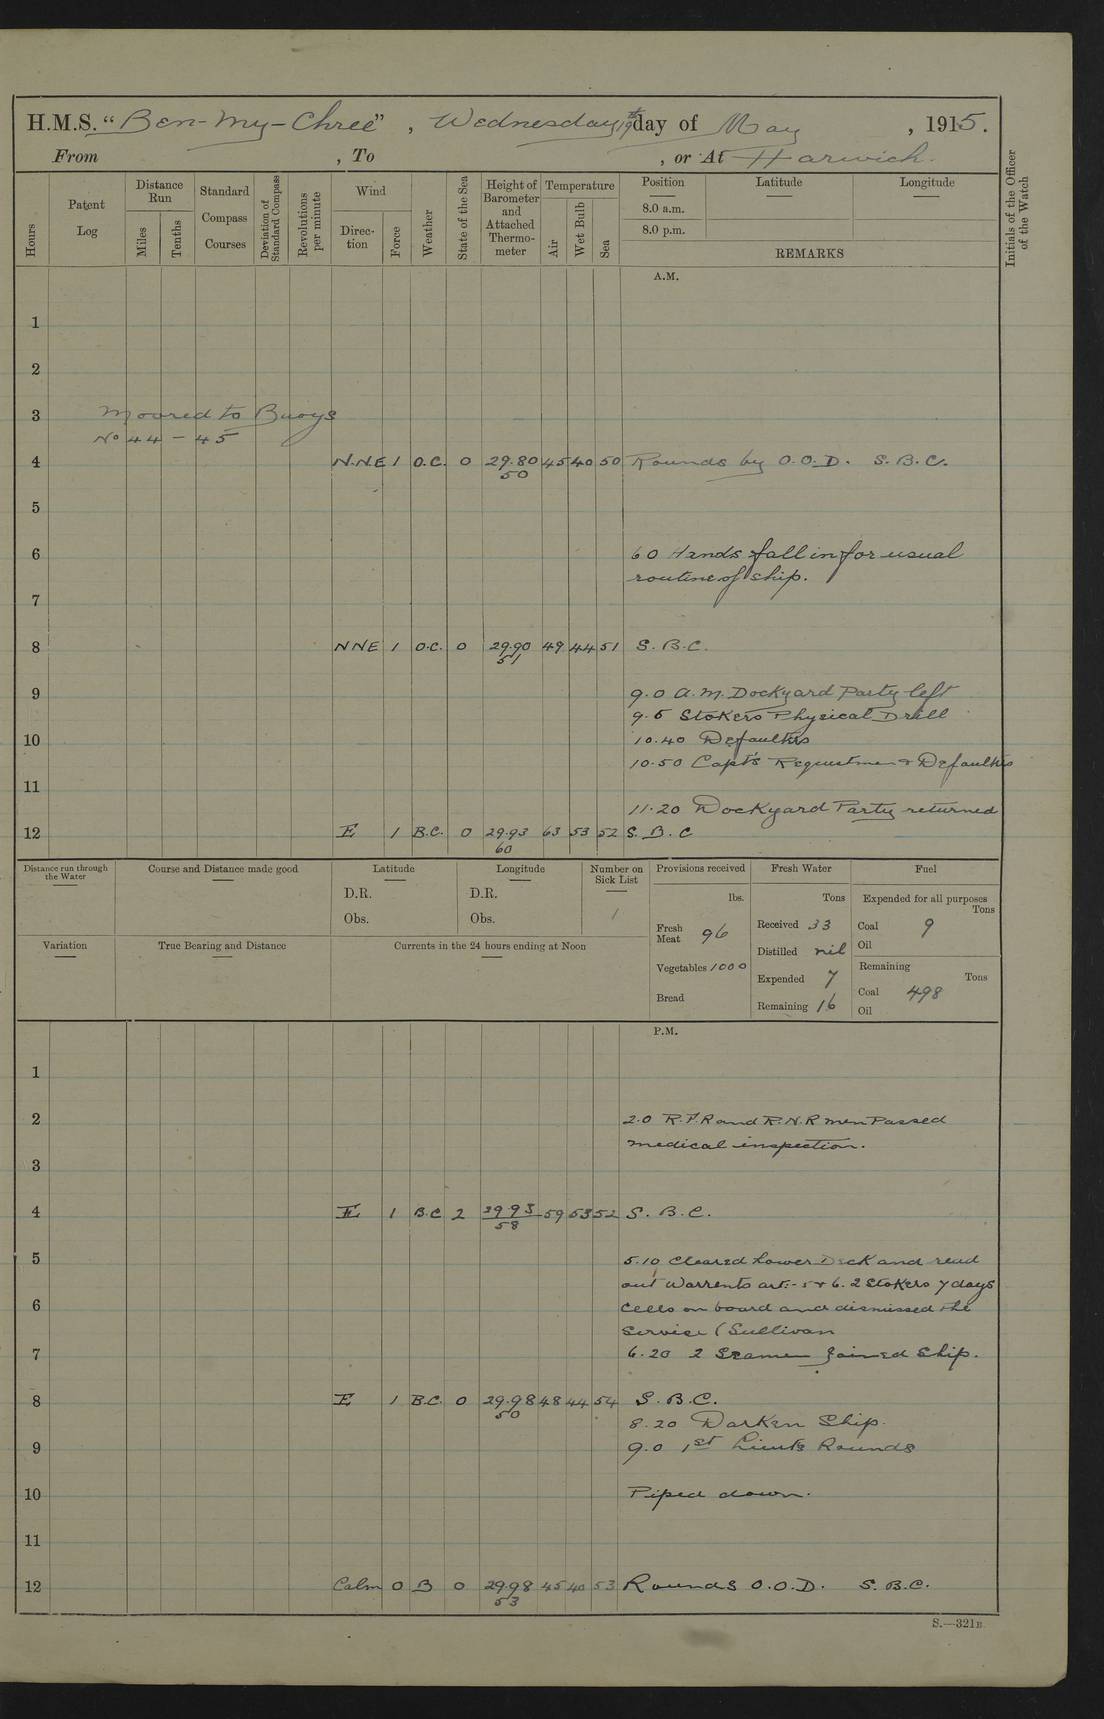 H.M.S. "Ben-My-Chree", Wednesday 19th day of May, 1915.
From , To , or At Harwich.
Hours
Patent Log
Distance Run
Miles
Tenths
Standard Compass Courses
Deviation of Standard Compass
Revolutions per minute
Wind
Direction
Force
Weather
State of the Sea
Height of Barometer and Attached Thermometer
Temperature
Air
Wet Bulb
Sea
Position
8.0 a.m.
8.0 p.m.
Latitude
Longitude
REMARKS
Initials of the Officer of the Watch
A.M.
1
2
3 Moored to Buoys
No 44 - 45
4 N.N.E 1 O.C. 0 29.80 45 40 50 Rounds by O.O.D. S.B.C.
50
5
6 6 0 Hands fall in for usual
routine of ship.
7
8 NNE 1 O.C. 0 29.90 49 44 51 S.B.C.
51
9 9.0 a.m. Dockyard Party left
9.5 Stokers Physical Drill
10 10.40 Defaulters
10.50 Capt's Requestmen & Defaulters
11
11.20 Dockyard Party returned
12 E 1 B.C. 0 29.93 63 53 52 S.B.C
60
Distance run through the Water
Course and Distance made good
Latitude
D.R.
Obs.
Longitude
D.R.
Obs.
Number on Sick List
1
Provisions received
lbs.
Fresh Meat 96
Vegetables 1000
Bread
Fresh Water
Tons
Received 33
Distilled nil
Expended 7
Remaining 16
Fuel
Expended for all purposes
Tons
Coal 9
Oil
Remaining
Tons
Coal 498
Oil
Variation
True Bearing and Distance
Currents in the 24 hours ending at Noon
P.M.
1
2 2.0 R.F.R and R.N.R men Passed
medical inspection.
3
4 E 1 B.C 2 29.93 59 53 52 S.B.C.
58
5 5.10 Cleared Lower Deck and read
out Warrents art:- 5 & 6. 2 Stokers 7 days
6 Cells on board and dismissed the
Service (Sullivan
7 6.20 2 Seamen joined Ship.
8 E 1 B.C. 0 29.98 48 44 54 S.B.C.
50
8.20 Darken Ship.
9 9.0 1st Lieuts Rounds
10 Piped down.
11
12 Calm 0 B 0 29.98 45 40 53 Rounds O.O.D. S.B.C.
53
S.—321B